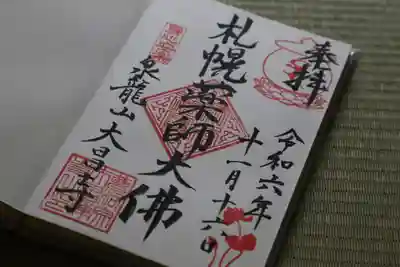 奉拝
令和六年
十一月十六日
札幌薬師大佛
泉龍山大昌寺